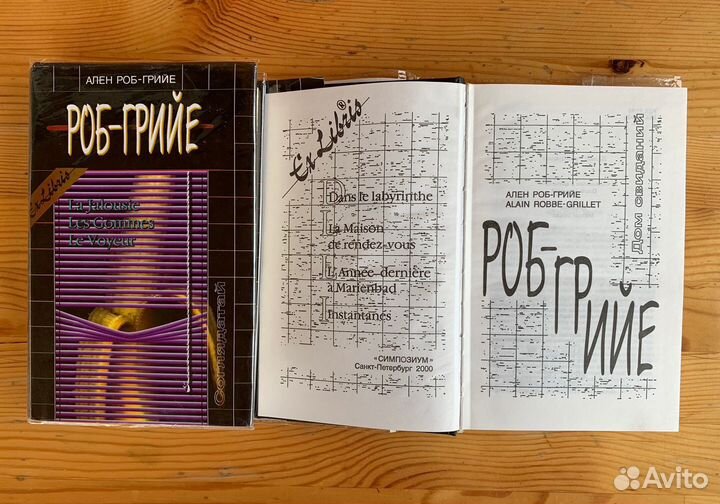 АЛЕН РОБ-ГРИЙЕ
РОБ-ГРИЙЕ
Ex Libris
La Jalousie
Les Gommes
Le Voyeur
Соглядатай
Ex Libris®
Dans le labyrinthe
La Maison
de rendez-vous
L'Année dernière
à Marienbad
Instantanés
«СИМПОЗИУМ»
Санкт-Петербург 2000
АЛЕН РОБ-ГРИЙЕ
ALAIN ROBBE-GRILLET
Дом свиданий
РОБ-ГРИЙЕ
Avito